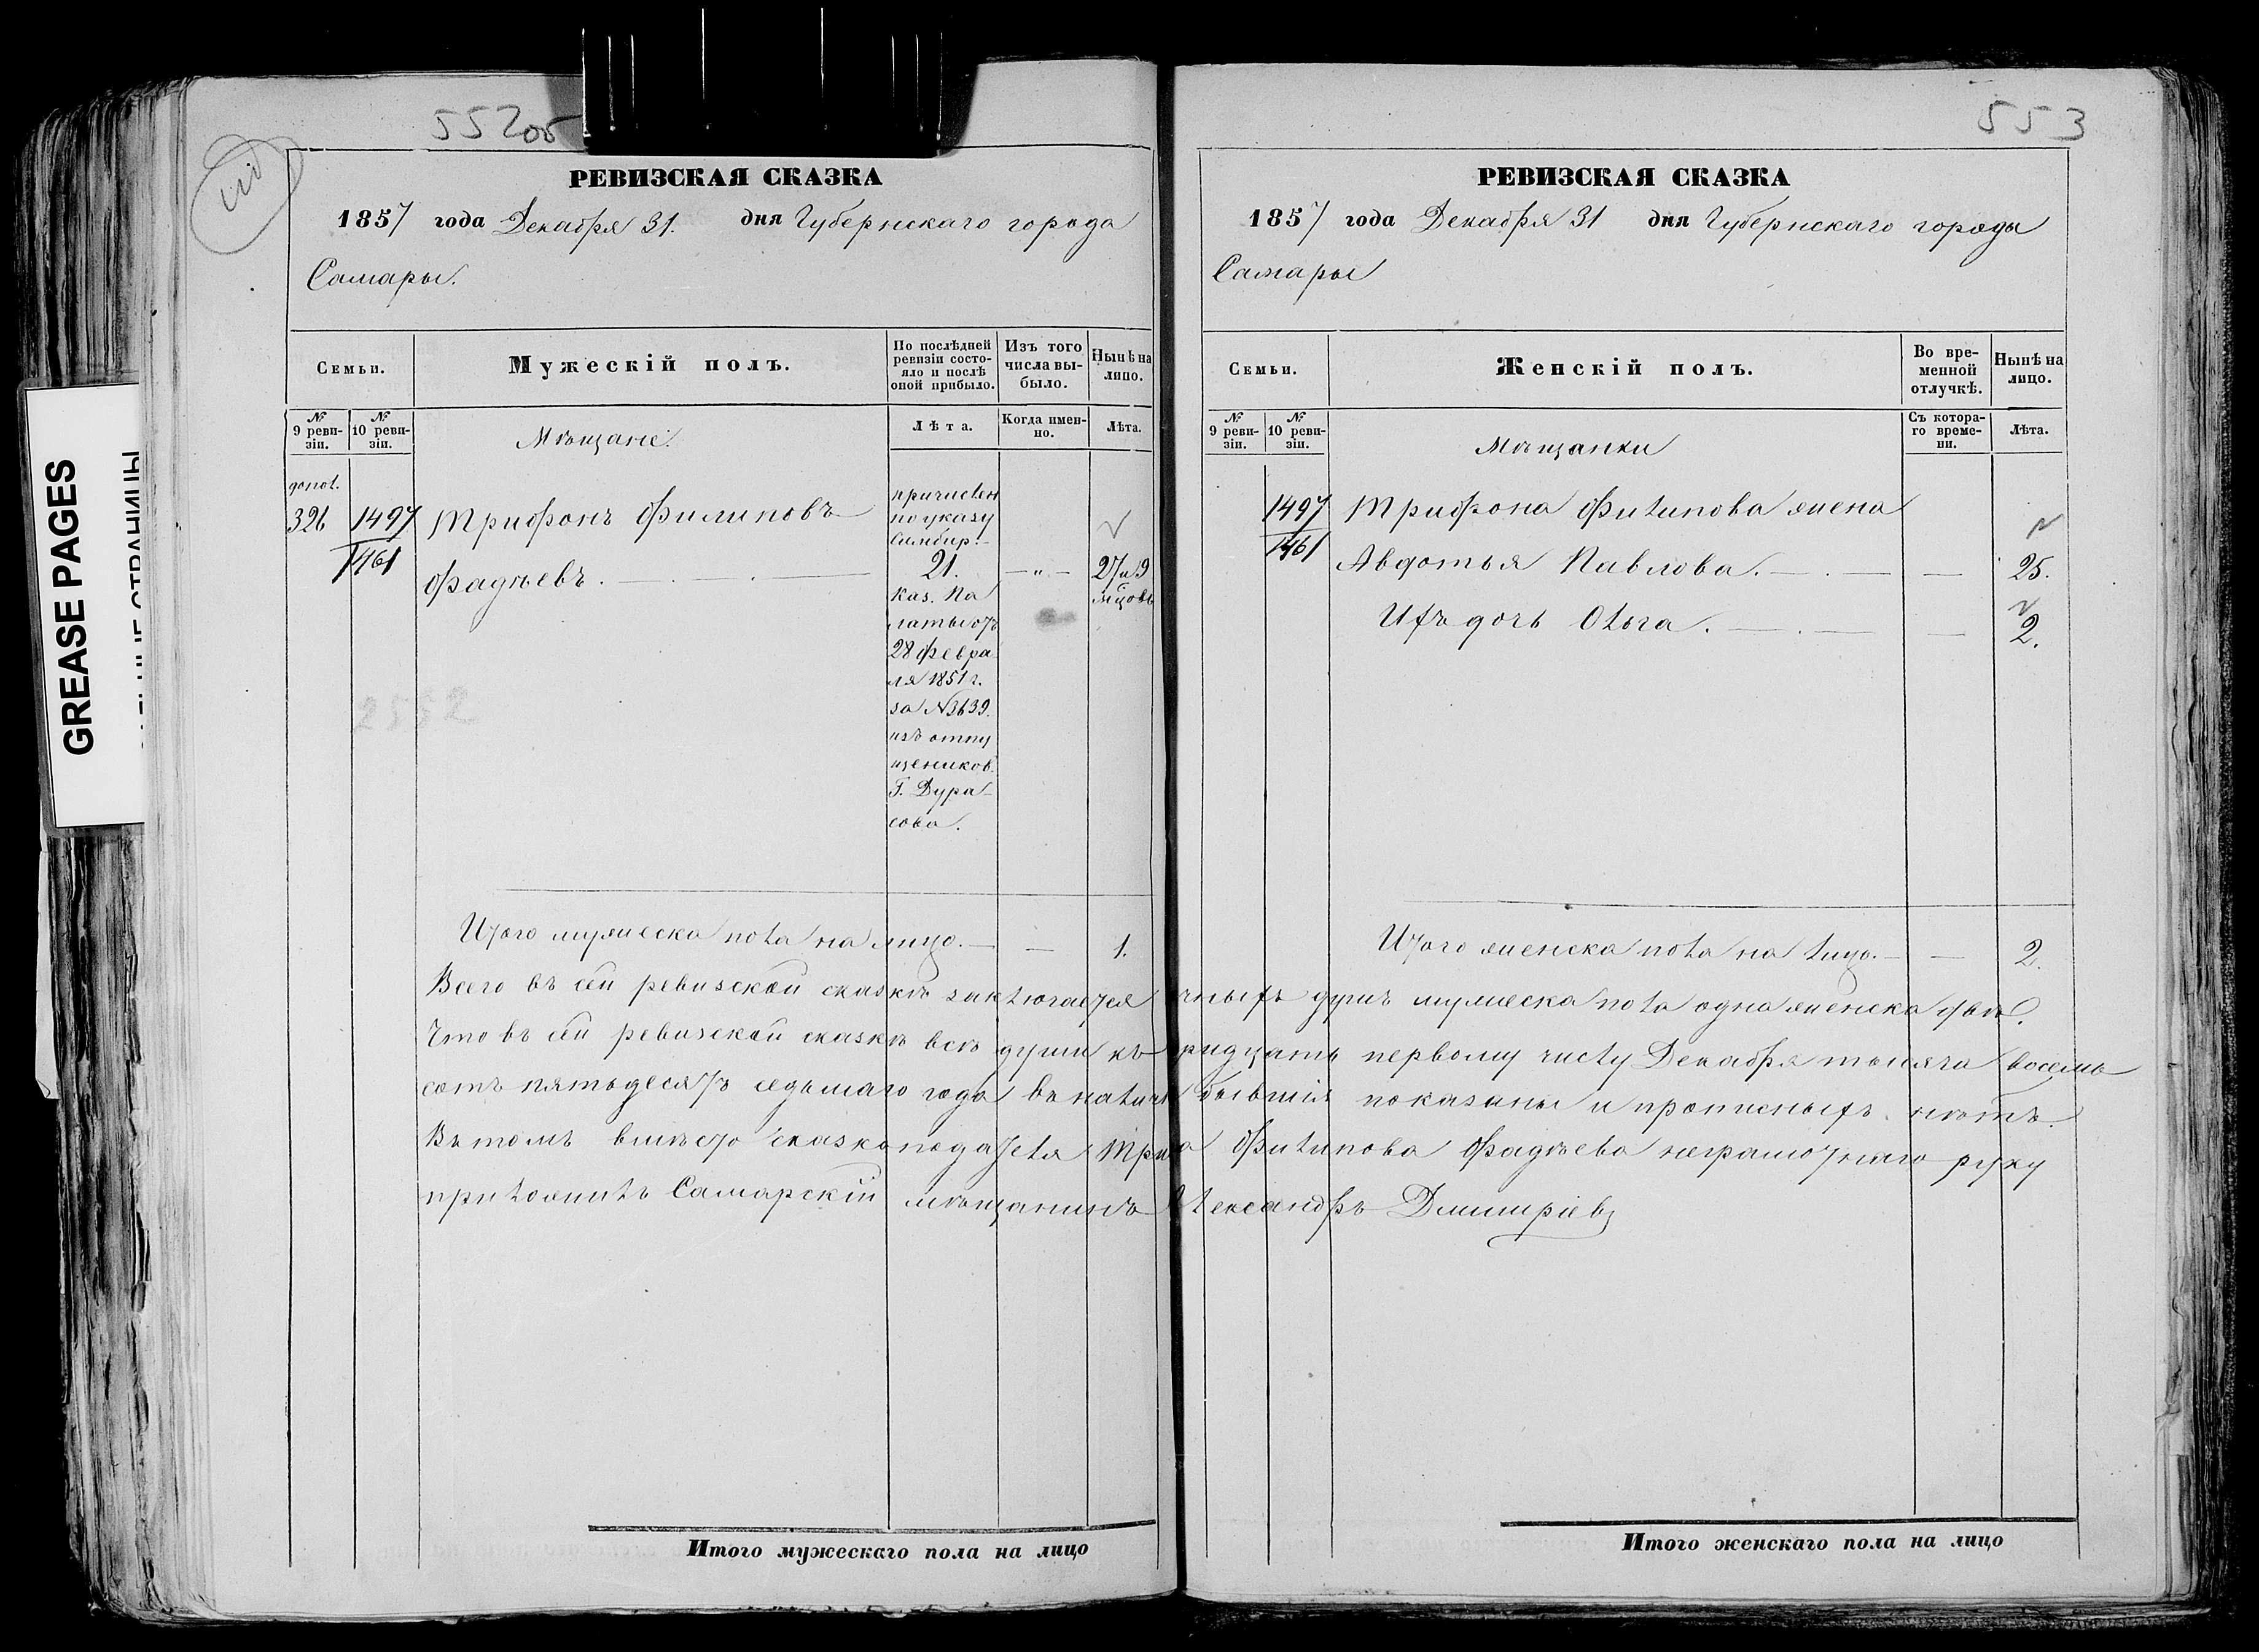 552об
РЕВИЗСКАЯ СКАЗКА
1857 года Декабря 31. дня Губернскаго города
Самары.
Семьи.
Мужескій полъ.
По послѣдней ревизіи состояло и послѣ оной прибыло.
Изъ того числа выбыло.
Нынѣ на лицо.
№ 9 ревизіи.
№ 10 ревизіи.
Мѣщане.
Лѣта.
Когда именно.
Лѣта.
допол.
326
1497
1461
Трифонъ Филиповъ
Фадѣевъ.
причислен
по указу
Симбир.
21.
Каз. Па
латы отъ
28 Февра
ля 1851 г.
за №3639.
изъ отпу
щеников.
Г. Дура-
сова.
— " —
27 и 9
мцовъ
2552
Итого мужеска пола на лицо. — — 1.
553
РЕВИЗСКАЯ СКАЗКА
1857 года Декабря 31 дня Губернскаго города
Самары
Семьи.
Женскій полъ.
Во временной отлучкѣ.
Нынѣ на лицо.
№ 9 ревизіи.
№ 10 ревизіи.
Мѣщанки
Съ котораго времени.
Лѣта.
1497
1461
Трифона Филипова жена
Авдотья Павлова. — — 25.
Ихъ дочь Олга. — — 2.
Итого женска пола на лицо. — — 2.
Всего въ сей ревизской сказкѣ заключается чныхъ душъ мужеска пола одна женска двѣ.
Что въ сей ревизской сказкѣ всѣ души къ ридцать первому числу Декабря тысяча восемь
сотъ пятьдесятъ седьмаго года въ наличі бывшія показаны и прописныхъ нѣтъ.
Въ томъ вмѣсто сказкоподателя Три а Филипова Фадѣева неграмотнаго руку
приложилъ Самарскій мѣщанинъ Александръ Дмитріевъ
Итого мужескаго пола на лицо
Итого женскаго пола на лицо
GREASE PAGES